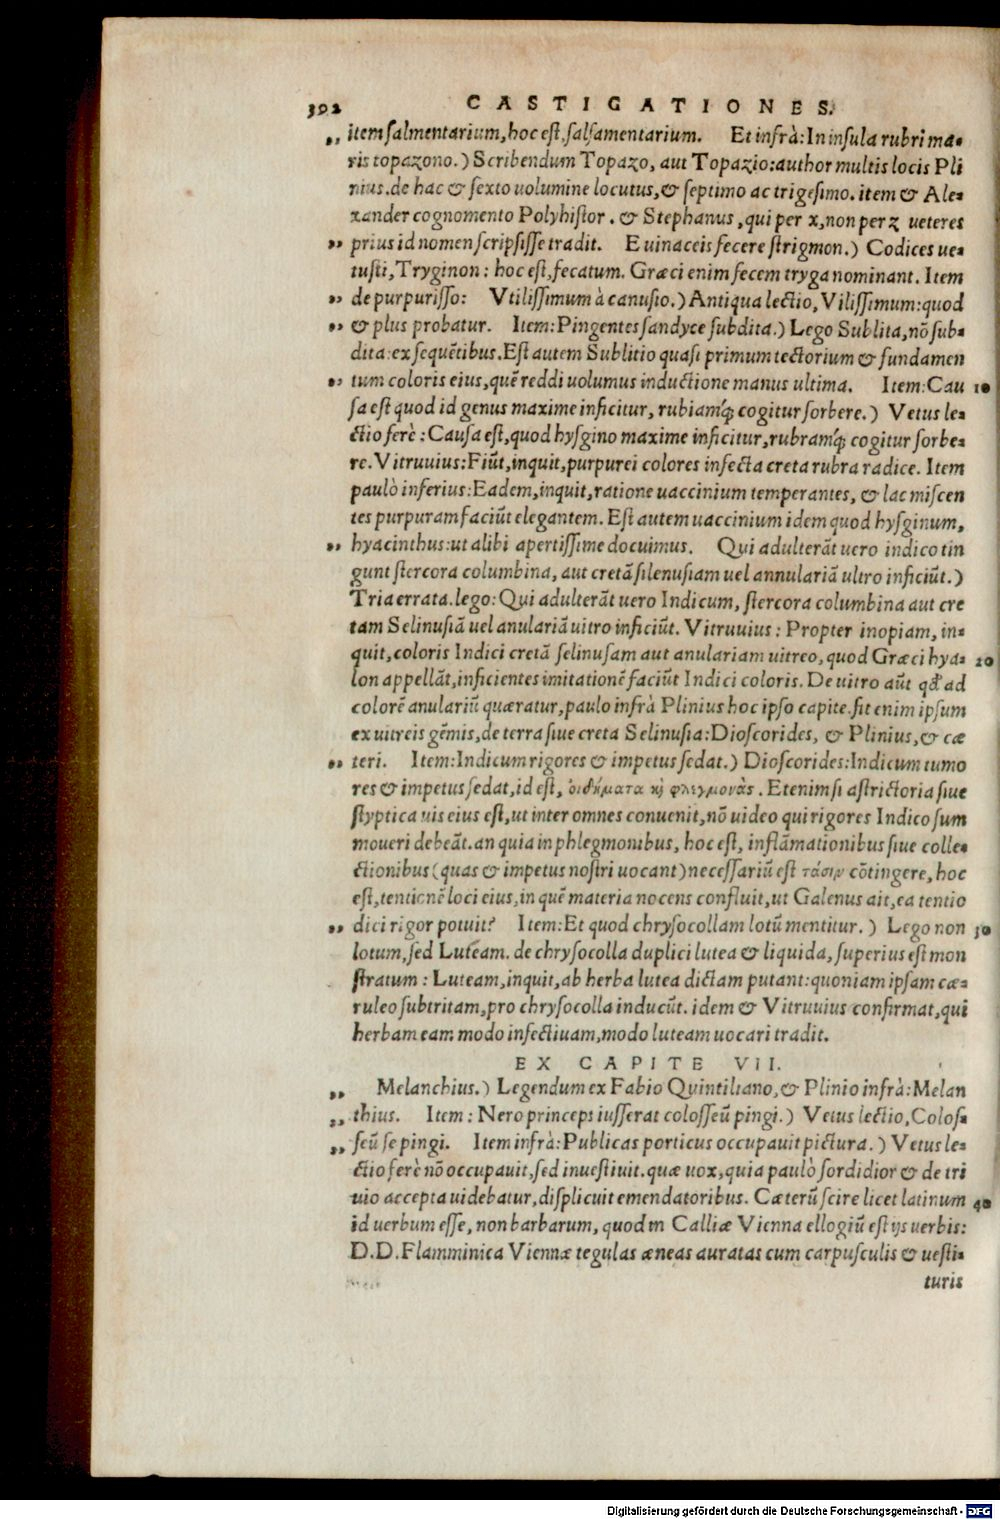 392 CASTIGATIONES.
„ item ſalmentarium, hoc eſt, ſalſamentarium. Et infrà: In inſula rubri ma-
ris topazono.) Scribendum Topazo, aut Topazio: author multis locis Pli
nius. de hac & ſexto uolumine locutus, & ſeptimo ac trigeſimo. item & Ale-
xander cognomento Polyhiſtor. & Stephanus, qui per x, non per z ueteres
„ prius id nomen ſcripſiſſe tradit. E uinaceis fecere ſtrigmon.) Codices ue-
tuſti, Tryginon: hoc eſt, fecatum. Græci enim fecem tryga nominant. Item
„ de purpuriſſo: Vtiliſſimum à canuſio.) Antiqua lectio, Viliſſimum: quod
„ & plus probatur. Item: Pingentes ſandyce ſubdita.) Lego Sublita, nõ ſub-
dita: ex ſequẽtibus. Eſt autem Sublitio quaſi primum tectorium & fundamen
„ tum coloris eius, quẽ reddi uolumus inductione manus ultima. Item: Cau 10
ſa eſt quod id genus maxime inficitur, rubiamq́; cogitur ſorbere.) Vetus le-
ctio ferè: Cauſa eſt, quod hyſgino maxime inficitur, rubramq́; cogitur ſorbe-
re. Vitruuius: Fiũt, inquit, purpurei colores infecta creta rubra radice. Item
paulò inferius: Eadem, inquit, ratione uaccinium temperantes, & lac miſcen
tes purpuram faciũt elegantem. Eſt autem uaccinium idem quod hyſginum,
„ hyacinthus: ut alibi apertiſſime docuimus. Qui adulterãt uero indico tin
gunt ſtercora columbina, aut cretã ſilenuſiam uel annulariã ultro inficiũt.)
Tria errata. lego: Qui adulterãt uero Indicum, ſtercora columbina aut cre
tam Selinuſiã uel anulariã uitro inficiũt. Vitruuius: Propter inopiam, in-
quit, coloris Indici cretã ſelinuſam aut anulariam uitreo, quod Græci hya- 20
lon appellãt, inficientes imitationẽ faciũt Indici coloris. De uitro aũt qđ ad
colorẽ anulariũ quæratur, paulo infrà Plinius hoc ipſo capite. fit enim ipſum
ex uitreis gẽmis, de terra ſiue creta Selinuſia: Dioſcorides, & Plinius, & cæ
„ teri. Item: Indicum rigores & impetus ſedat.) Dioſcorides: Indicum tumo
res & impetus ſedat, id eſt, οἰδήματα κỳ φλεγμονάς. Etenim ſi aſtrictoria ſiue
ſtyptica uis eius eſt, ut inter omnes conuenit, nõ uideo qui rigores Indico ſum
moueri debeãt. an quia in phlegmonibus, hoc eſt, inflãmationibus ſiue colle-
ctionibus (quas & impetus noſtri uocant) neceſſariũ eſt τάσιν cõtingere, hoc
eſt, tentionẽ loci eius, in quẽ materia nocens confluit, ut Galenus ait, ea tentio
„ dici rigor potuit? Item: Et quod chryſocollam lotũ mentitur.) Lego non 30
lotum, ſed Luteam. de chryſocolla duplici lutea & liquida, ſuperius eſt mon
ſtratum: Luteam, inquit, ab herba lutea dictam putant: quoniam ipſam cæ-
ruleo ſubtritam, pro chryſocolla inducũt. idem & Vitruuius confirmat, qui
herbam eam modo infectiuam, modo luteam uocari tradit.
EX CAPITE VII.
„ Melanchius.) Legendum ex Fabio Quintiliano, & Plinio infrà: Melan
„ thius. Item: Nero princeps iuſſerat coloſſeũ pingi.) Vetus lectio, Coloſ-
„ ſeũ ſe pingi. Item infrà: Publicas porticus occupauit pictura.) Vetus le-
ctio ferè nõ occupauit, ſed inueſtiuit. quæ uox, quia paulò ſordidior & de tri
uio accepta uidebatur, diſplicuit emendatoribus. Cæterũ ſcire licet latinum 40
id uerbum eſſe, non barbarum, quod in Calliæ Vienna ellogiũ eſt ijs uerbis:
D.D. Flamminica Viennæ tegulas æneas auratas cum carpuſculis & ueſti-
turis
Digitalisierung gefördert durch die Deutsche Forschungsgemeinschaft - DFG